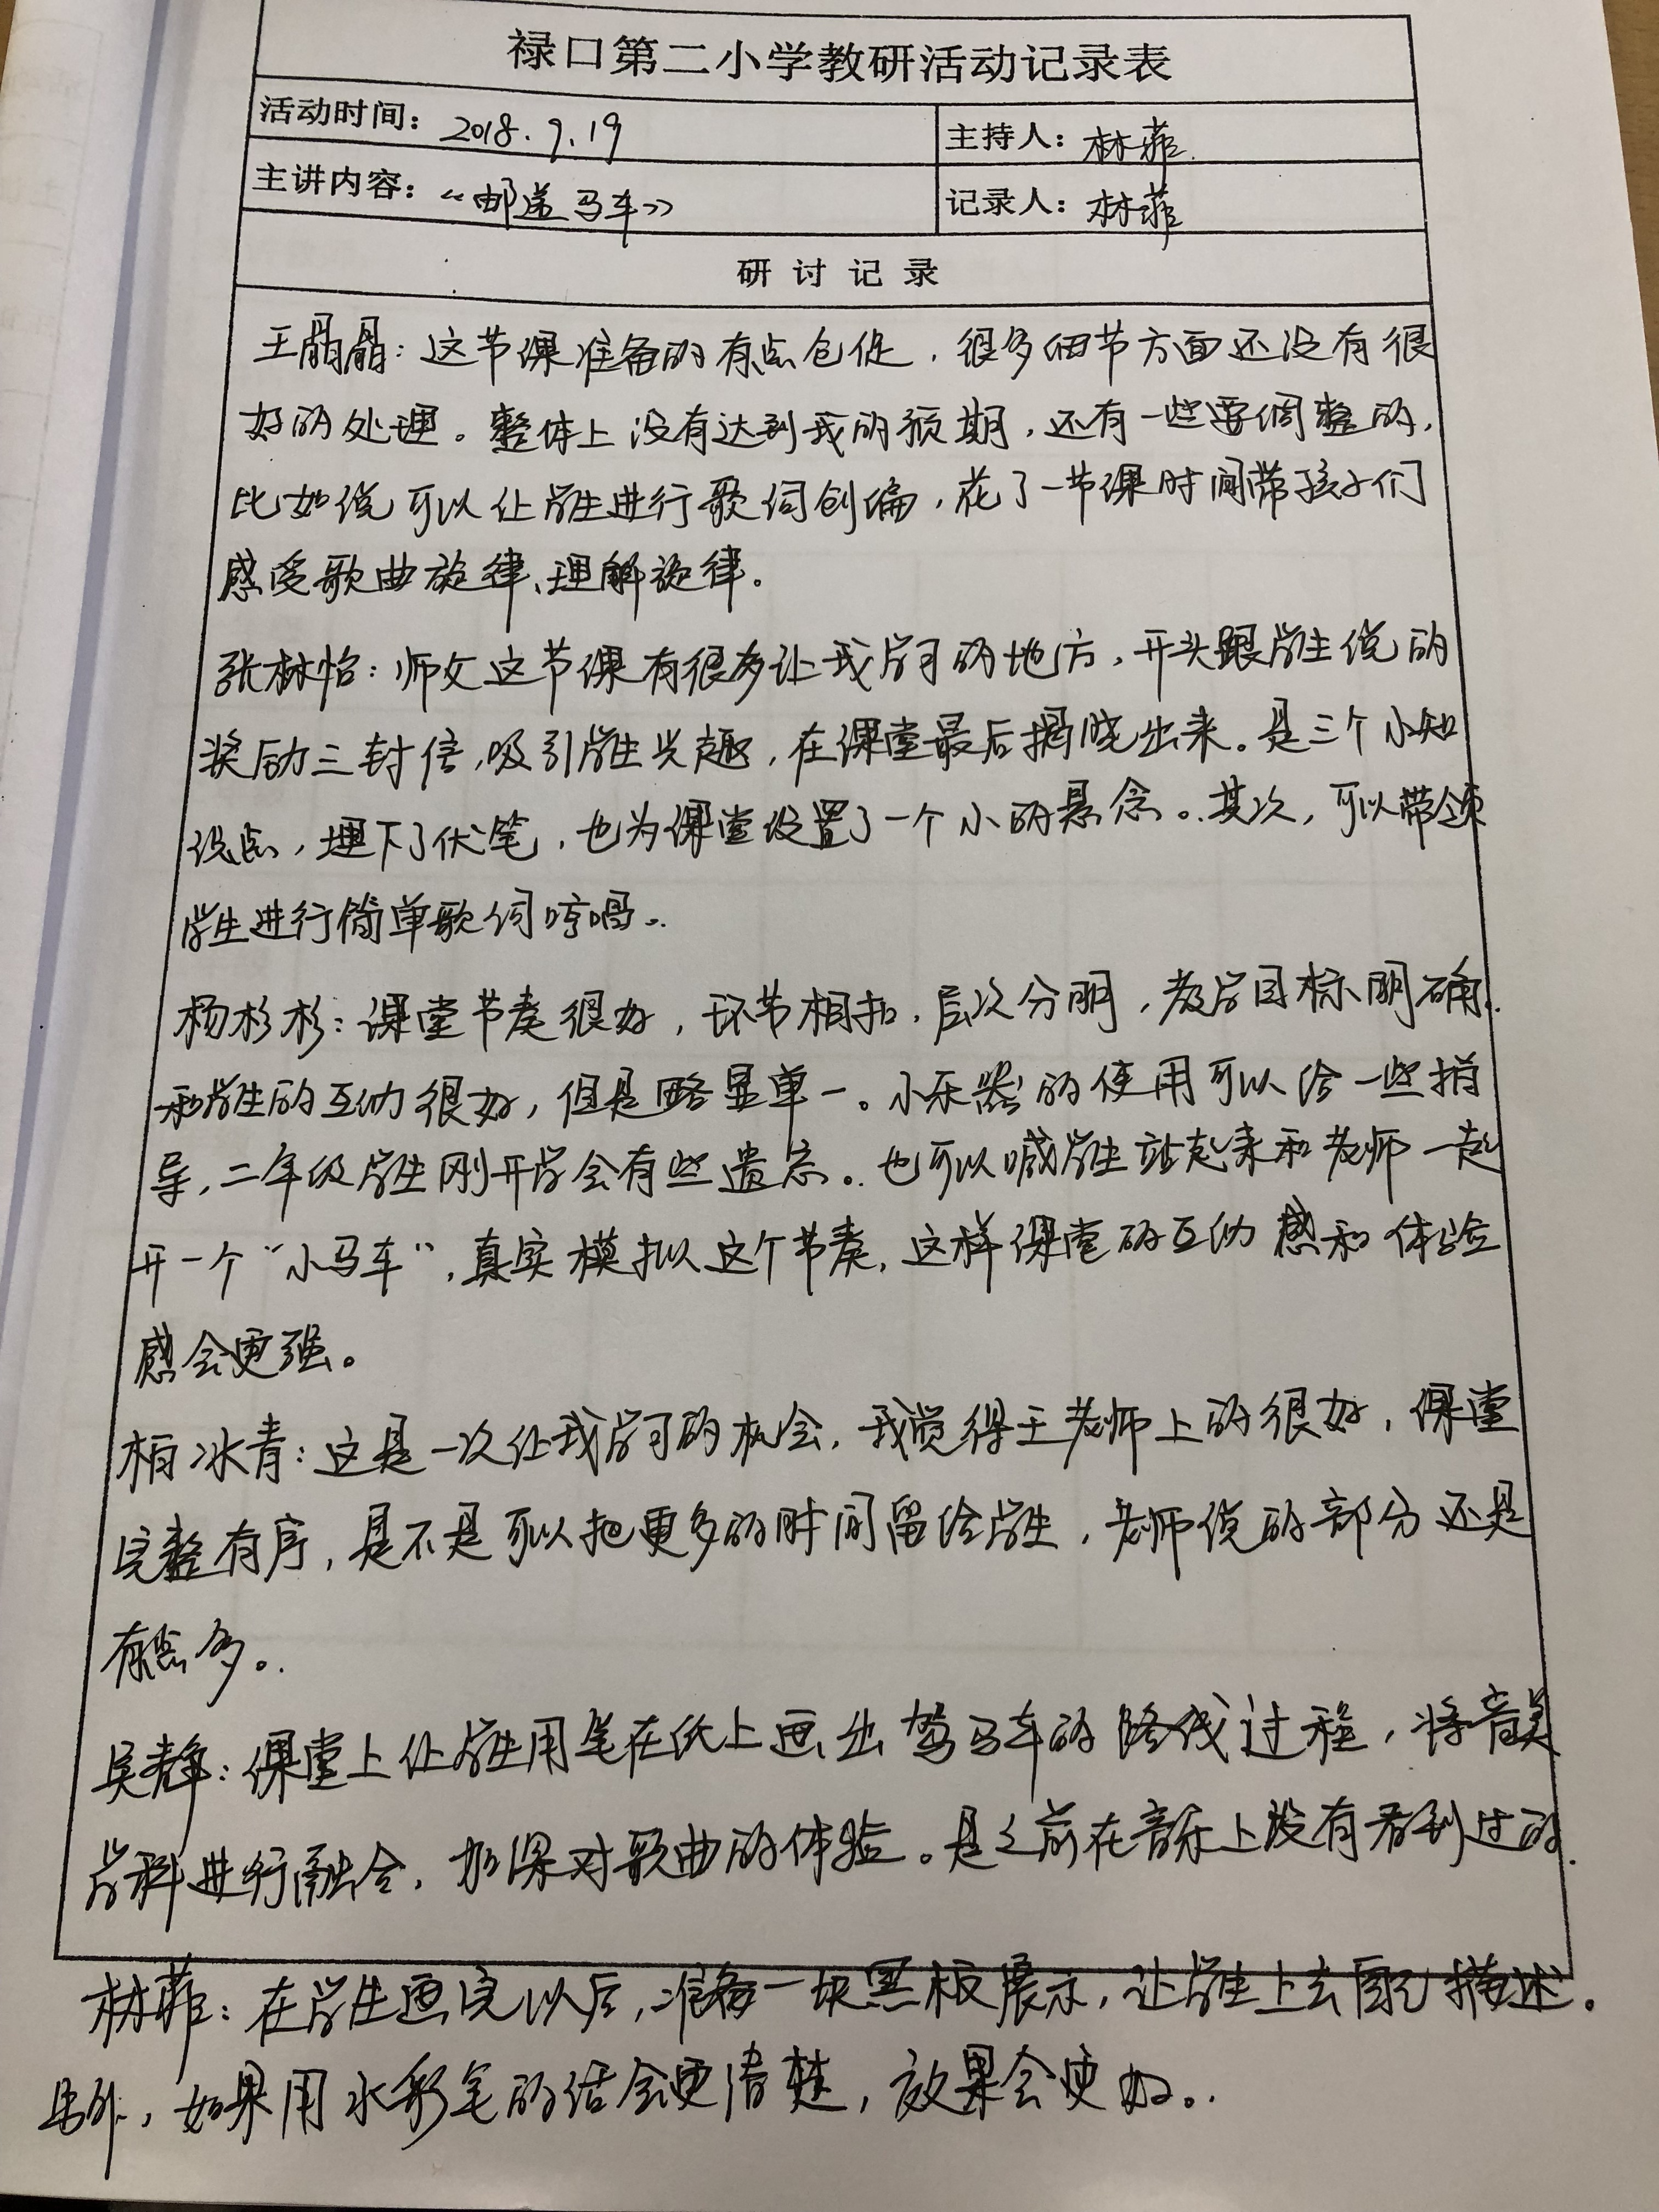 禄口第二小学教研活动记录表
活动时间：2018.9.19
主持人：林菲
主讲内容：《邮递马车》
记录人：林菲
研讨记录
王晶晶：这节课准备的有点仓促，很多细节方面还没有很
好的处理。整体上没有达到我的预期，还有一些要调整的，
比如说可以让学生进行歌词创编，花了一节课时间带孩子们
感受歌曲旋律、理解旋律。
张林怡：师父这节课有很多让我学习的地方，开头跟学生说的
奖励三封信，吸引学生兴趣，在课堂最后揭晓出来。是三个小知
识点，埋下了伏笔，也为课堂设置了一个小的悬念。其次，可以带领
学生进行简单歌词哼唱。
杨杉杉：课堂节奏很好，环节相扣，层次分明，教学目标明确。
和学生的互动很好，但是略显单一。小乐器的使用可以给一些指
导，二年级学生刚开学会有些遗忘。也可以喊学生站起来和老师一起
开一个“小马车”，真实模拟这个节奏，这样课堂的互动感和体验
感会更强。
柏冰青：这是一次让我学习的机会，我觉得王老师上的很好，课堂
完整有序，是不是可以把更多的时间留给学生，老师说的部分还是
有点多。
吴静：课堂上让学生用笔在纸上画出驾马车的路线过程，将音美
学科进行融合，加深对歌曲的体验。是之前在音乐上没有看到过的。
林菲：在学生画完以后，准备一块黑板展示，让学生上去自己描述。
另外，如果用水彩笔的话会更清楚，效果会更好。